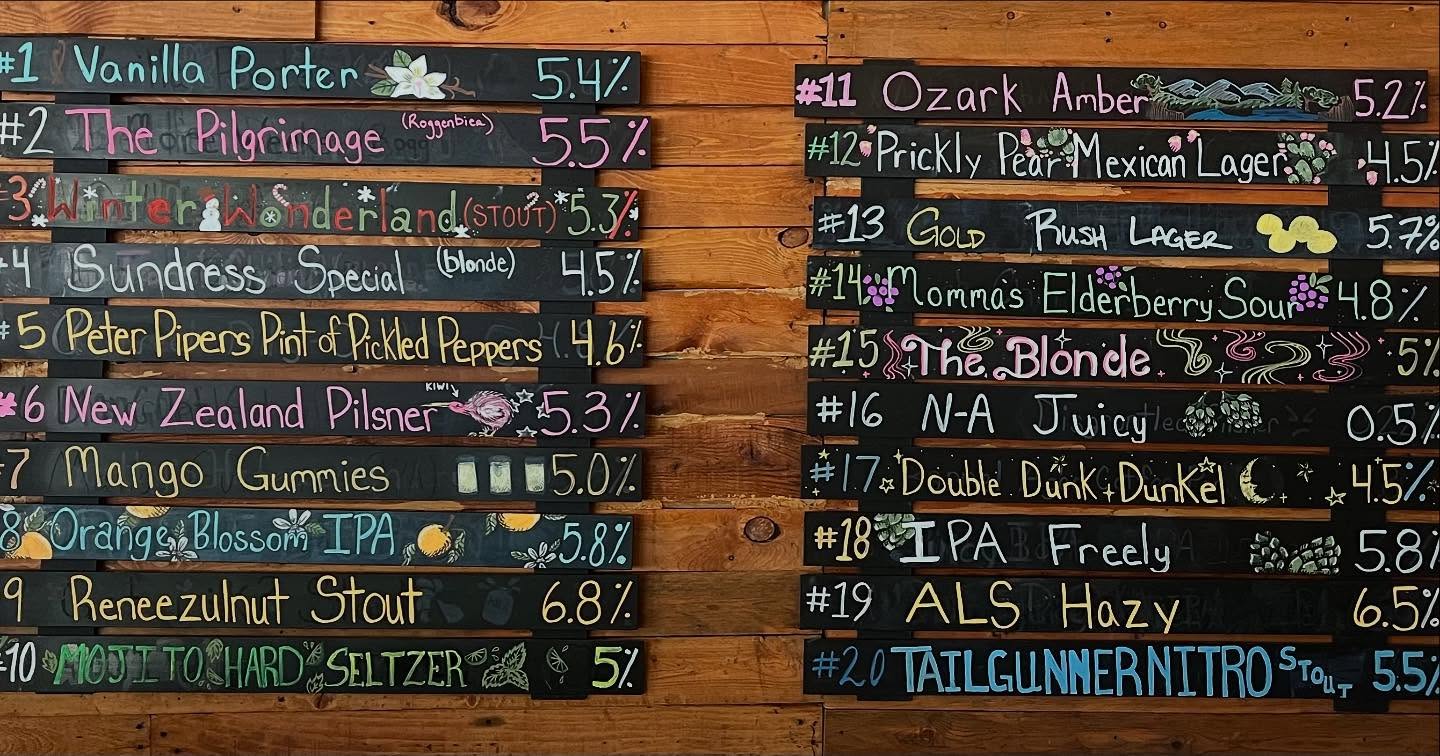 #1 Vanilla Porter 5.4%
#2 The Pilgrimage (Roggenbier) 5.5%
#3 Winter Wonderland (STOUT) 5.3%
#4 Sundress Special (blonde) 4.5%
#5 Peter Pipers Pint of Pickled Peppers 4.6%
#6 New Zealand Pilsner KIWI 5.3%
#7 Mango Gummies 5.0%
8 Orange Blossom IPA 5.8%
9 Reneezulnut Stout 6.8%
#10 MOJITO HARD SELTZER 5%
#11 Ozark Amber 5.2%
#12 Prickly Pear Mexican Lager 4.5%
#13 GOLD RUSH LAGER 5.7%
#14 Momma's Elderberry Sour 4.8%
#15 The Blonde 5%
#16 N-A Juicy 0.5%
#17 Double Dunk Dunkel 4.5%
#18 IPA Freely 5.8%
#19 ALS Hazy 6.5%
#20 TAILGUNNER NITRO STOUT 5.5%